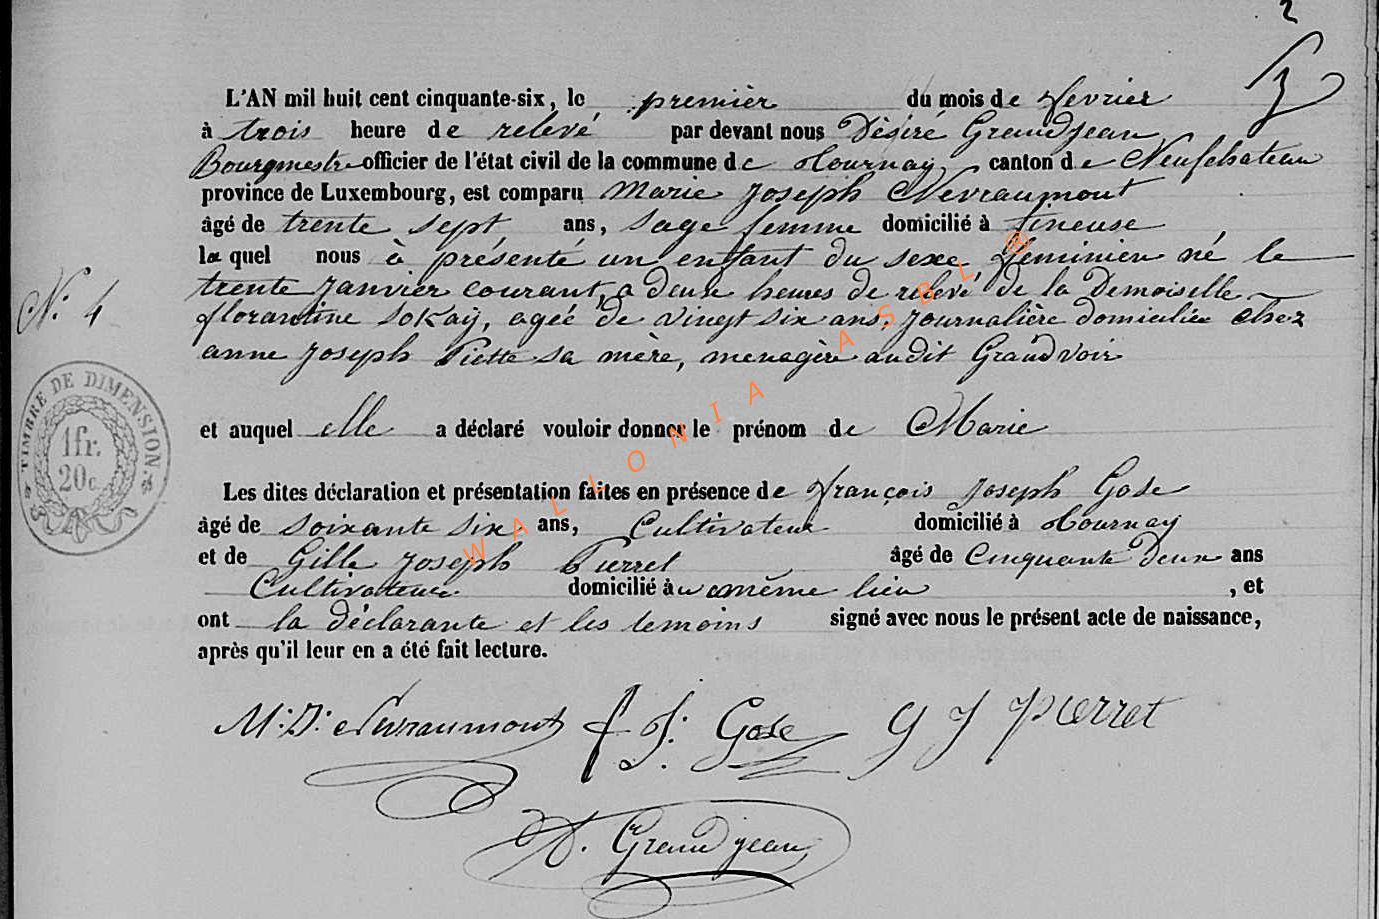 2
L'AN mil huit cent cinquante-six, le premièr du mois de fevrier
à trois heure de relevé par devant nous Dèsiré Grandjean
Bourgmestre officier de l'état civil de la commune de tournay canton de Neufchateau
province de Luxembourg, est comparu Marie Joseph Nevraumont
âgé de trente sept ans, sage femme domicilié à tineuse
laquel nous à présenté un enfant du sexe feminien né le
trente janvier courant, a deux heures de relevé de la Demoiselle
florantine Sokay, ageé de vingt six ans, journalière domiciliée chez
N: 4
anne joseph Piette sa mère, menagère audit Grandvoir
TIMBRE DE DIMENSION
1fr.
20c
et auquel elle a déclaré vouloir donner le prénom de Marie
Les dites déclaration et présentation faites en présence de françois joseph Gose
âgé de soixante six ans, Cultivateur domicilié à tournay
et de Gille joseph Pierret âgé de Cinquante deux ans
Cultivateur domicilié àu même lieu , et
ont la déclarante et les temoins signé avec nous le présent acte de naissance,
après qu'il leur en a été fait lecture.
M: J: Nevraumont f J: Gose g J pierret
D. Grandjean
WALLONIA ASBL ®